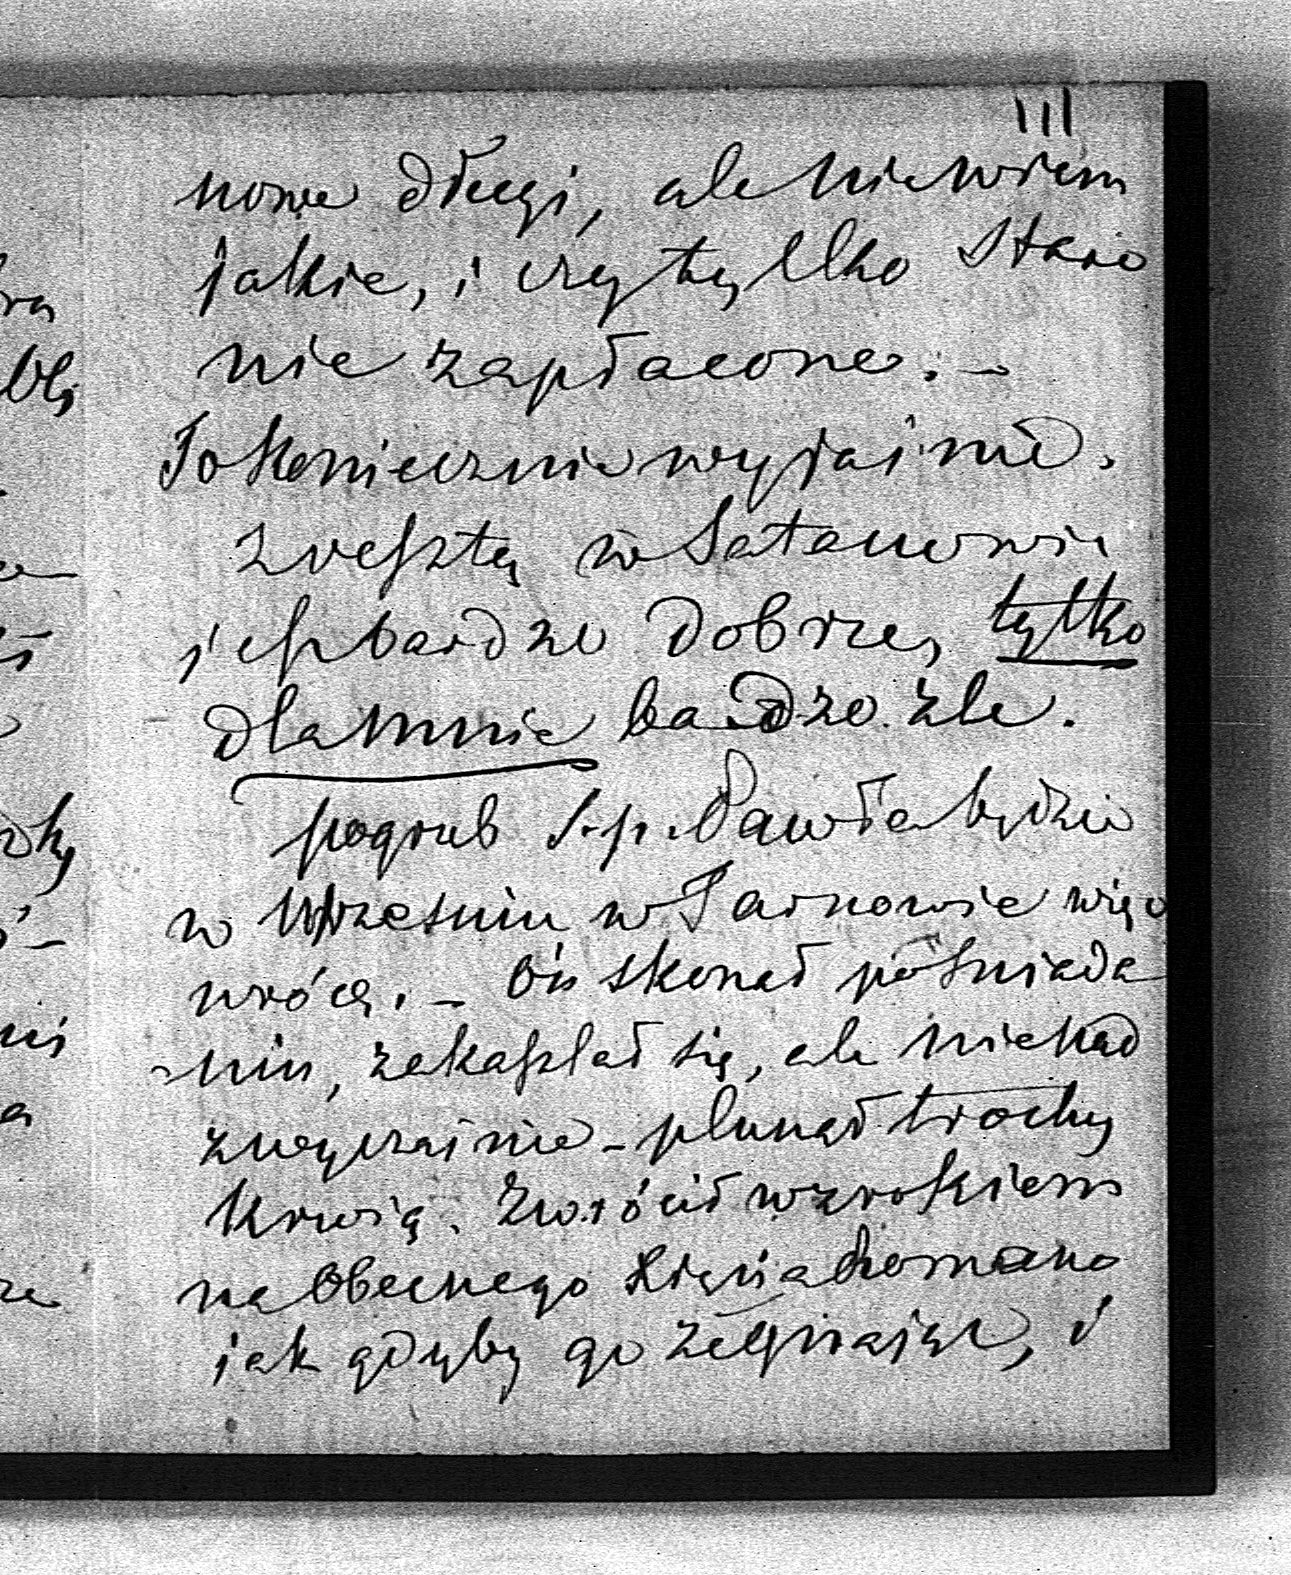 III
nowe długi, ale nie wiem
jakie, i czy tylko stare
nie zapłacone. –
To koniecznie wyjaśnić.
zresztą w Satanowie
jest bardzo dobrze, tylko
dla mnie bardzo źle.
pogrzeb ś.p. Pawła będzie
w Wrześniu w Tarnowie więc
wrócę. – On skonał po śniada
-niu, zakaszlał się, ale nie nad
zwyczajnie – plunął trochę
krwią. Zwrócił wzrokiem
na obecnego Xięcia Romana
jak gdyby go żegnając, i